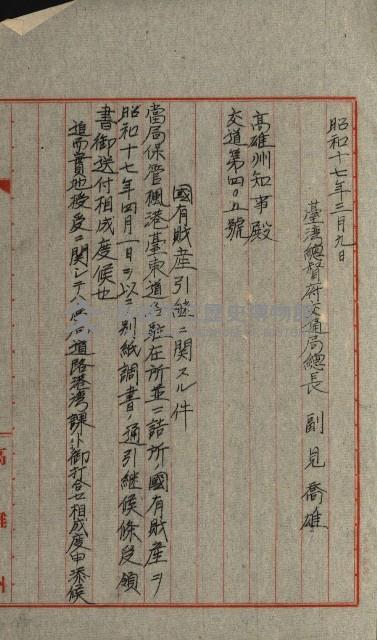 昭和十七年三月九日
臺灣總督府交通局總長 副見喬雄
高雄州知事殿
交道第四〇五號
國有財産引繼ニ關スル件
當局保管楓港臺東道路駐在所並ニ詰所ノ國有財産ヲ
昭和十七年四月一日ヲ以テ別紙調書ノ通引繼候條受領
書御送付相成度候也
追而實地授受ニ關シテハ當局道路港灣課ト御打合セ相成度申添候
高雄州